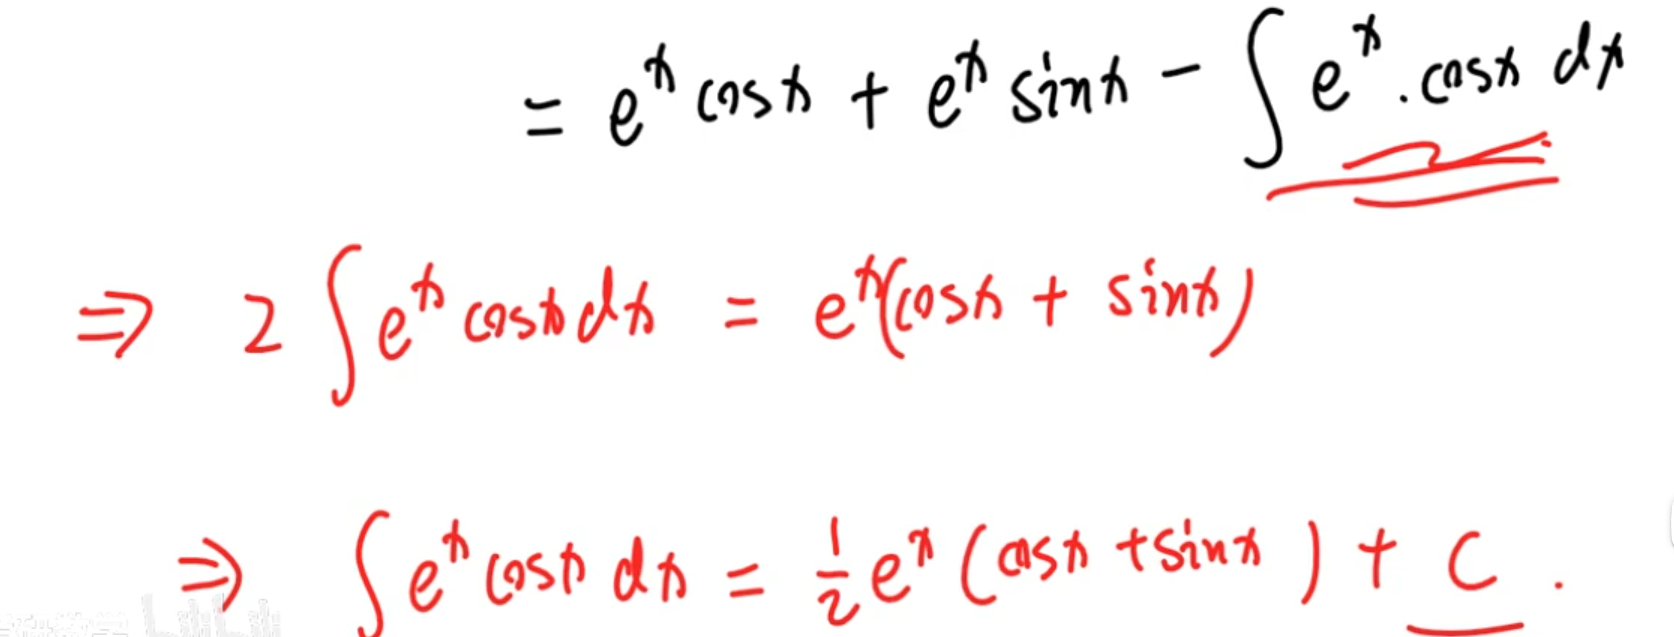 = e^x cosx + e^x sinx - ∫ e^x . cosx dx
⇒ 2 ∫ e^x cosx dx = e^x (cosx + sinx)
⇒ ∫ e^x cosx dx = 1/2 e^x (cosx + sinx) + C .